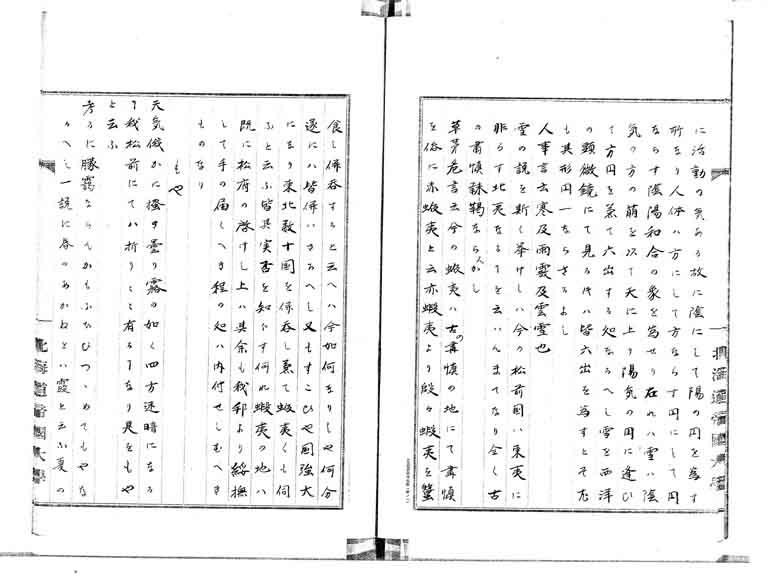 に活動の気ある故に陰にして陽の円を為す
所なり人体ハ方にして方ならす円にして円
ならす陰陽和合の象を為せり在れハ雪ハ陰
気の方の萌を以て天に上り陽気の円に逢ひ
て方円を兼て六出する処なるへし雪を西洋
の顕微鏡にて見る時ハ皆六出を為すとそ尤
も其形円一ならさるよし
人事言云寒及雨霰及雲雪也
雪の説を斯く挙けしハ今の松前国ハ東夷に
非らす北夷なるを云いんまてなり全く古
の肅慎靺鞨ならんかし
草茅危言云今の蝦夷ハ古の肅慎の地にて肅慎
を俗に亦蝦夷と云亦蝦夷より段々蝦夷を蟹
食し併呑すると云へハ今如何なりしや何分
遂にハ皆併いさるへし又もすこひや国強大
になり東北数十国を併呑し兼て蝦夷くも伺
ふと云ふ皆其実否を知らす何れ蝦夷の地ハ
既に松府の啓けし上ハ其余も我邦より綏撫
して手の届くへき程の処ハ内付せしむへき
ものなり
もや
天気俄かに擾き曇り霧の如く四方迷暗になる
て我松前にてハ折りくゝ有るうなり是をもや
と云ふ
考るに朦靄ならんかもふなひつゝめてもやな
るへし一説に春のあかねとハ霞と云ふ夏の
北海道帝国大学